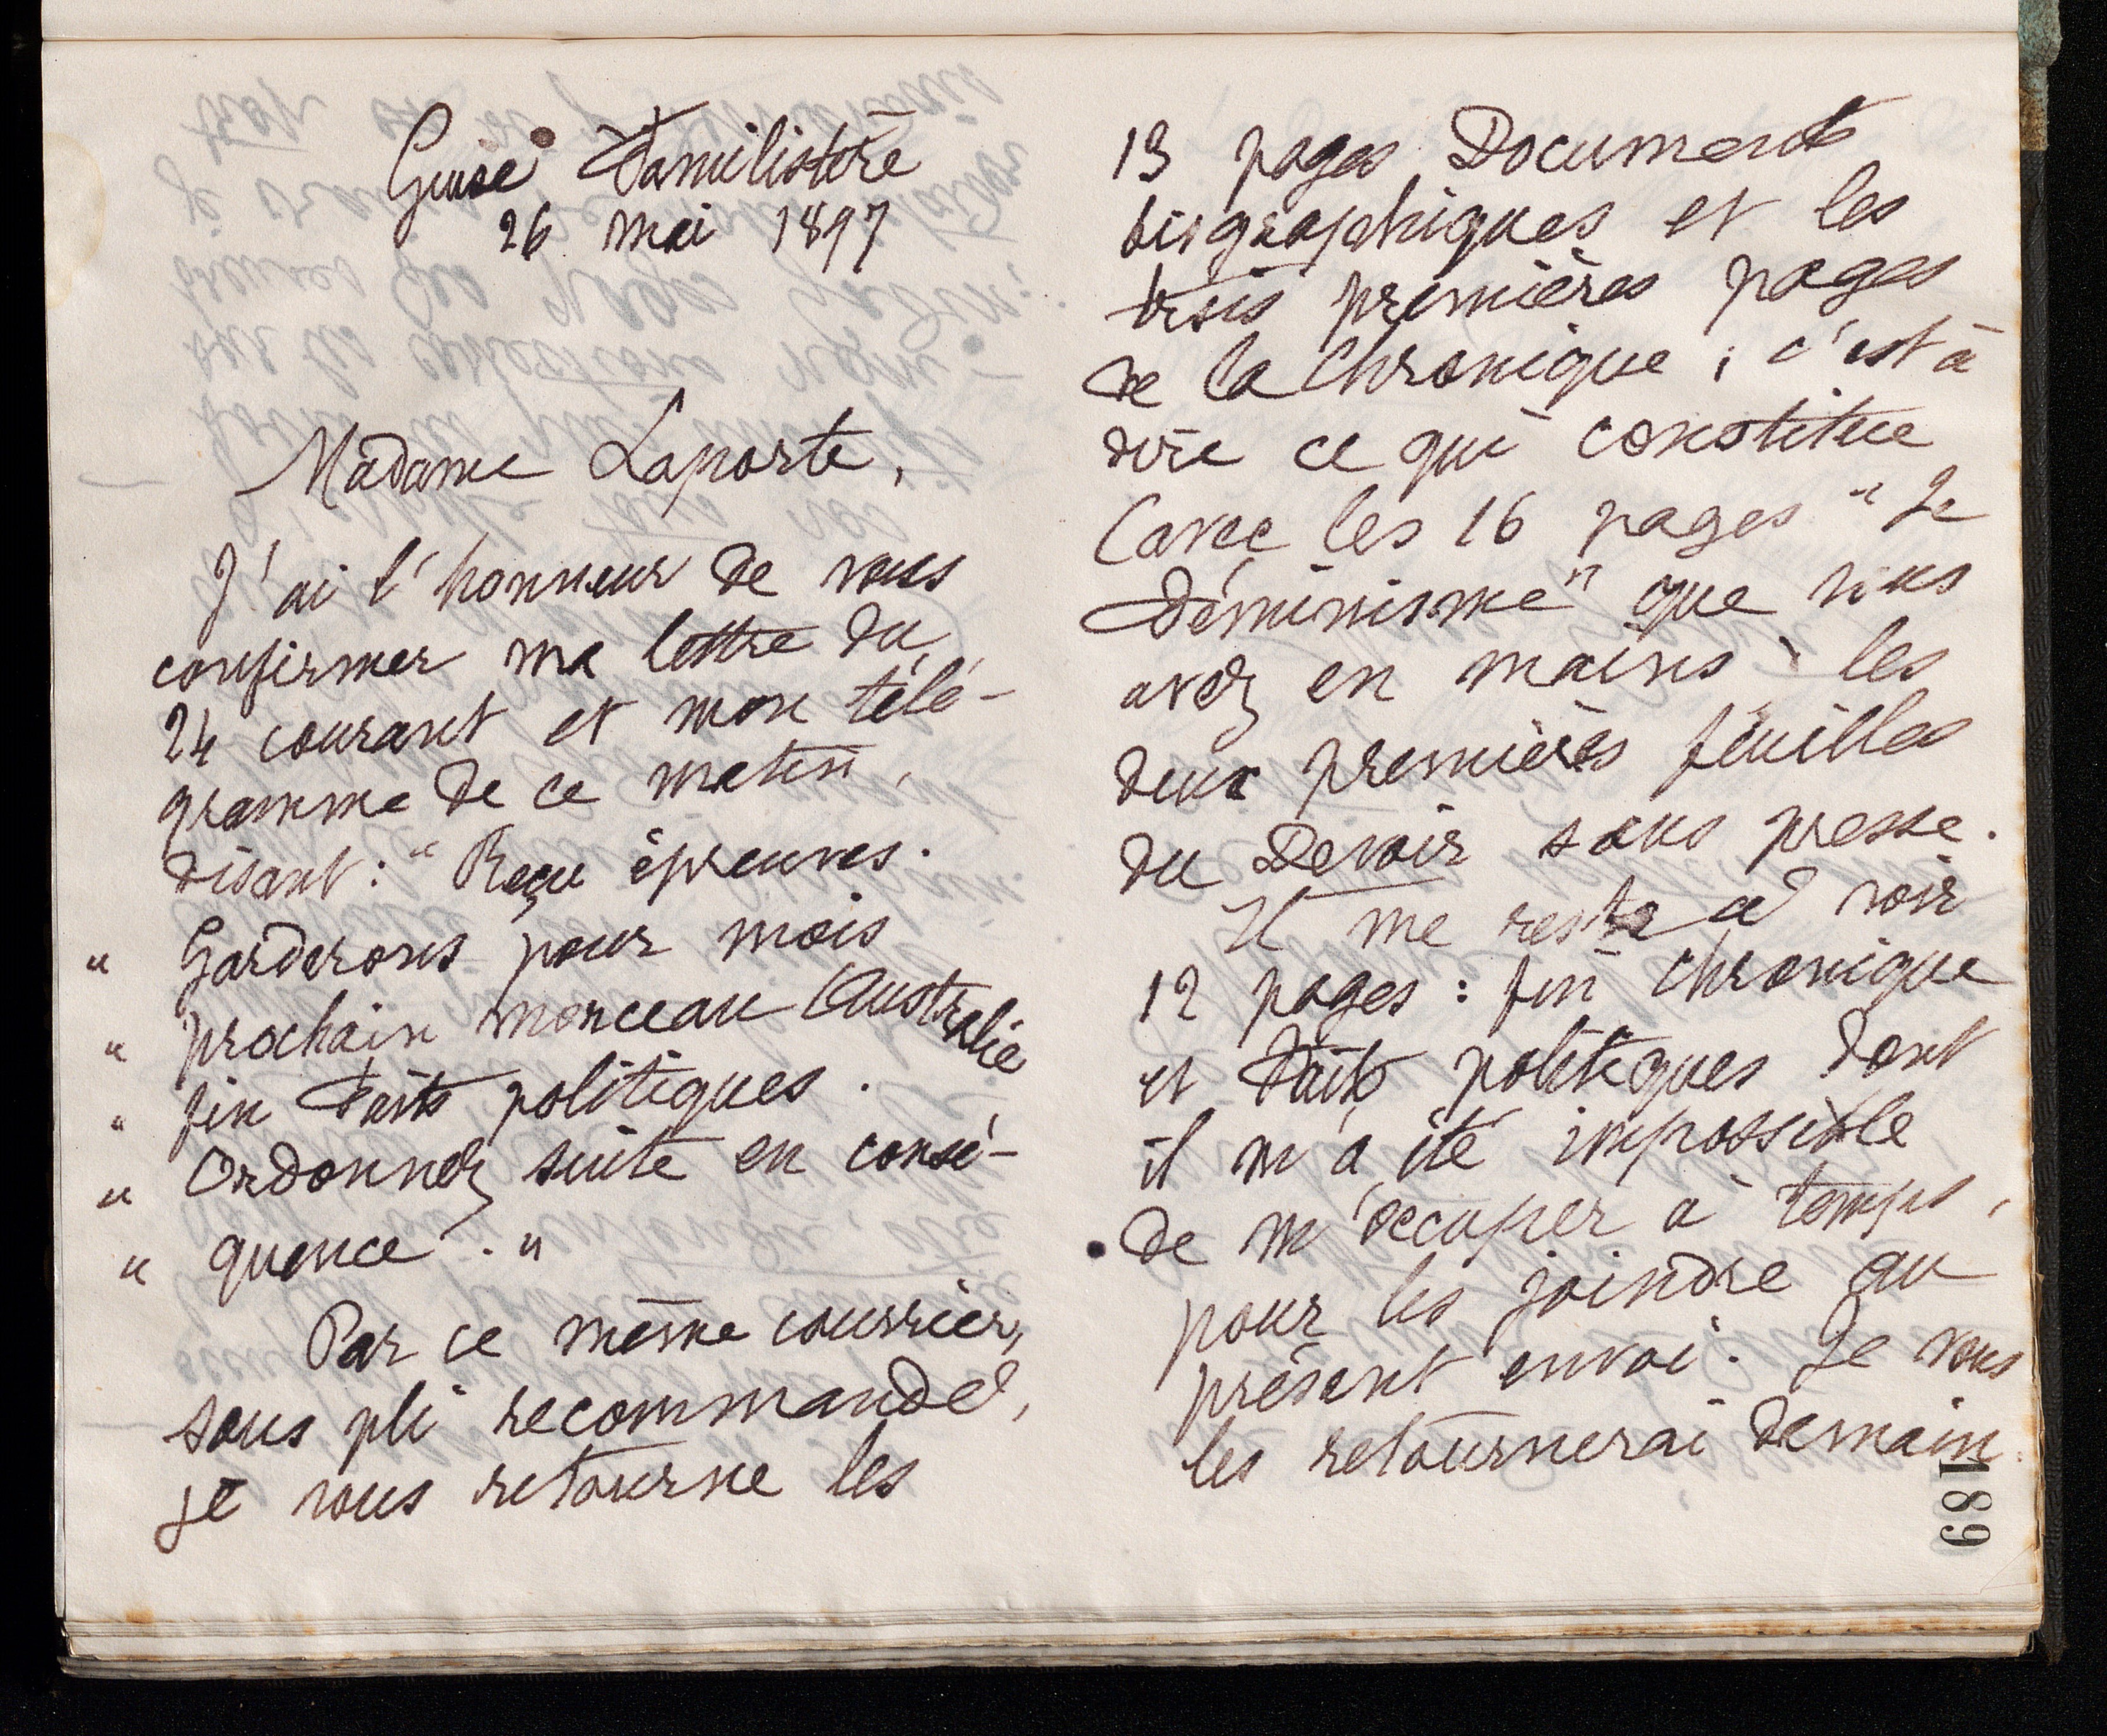 Guise Familistère
26 mai 1897
Madame Laporte,
J'ai l'honneur de vous
confirmer ma lettre du
24 courant et mon télé-
gramme de ce matin,
disant : "Reçu épreuves.
" Garderons pour mois
" prochain morceau Australie
" fin Faits politiques.
" Ordonnez suite en consé-
" quence."
Par ce même courrier,
sous pli recommandé,
je vous retourne les
13 pages Documents
biographiques et les
trois premières pages
de la Chronique ; c'est à
dire ce qui constitue
(avec les 16 pages "Le
Féminisme" que vous
avez en mains) les
deux premières feuilles
du Devoir sous presse.
Il me reste à voir
12 pages : fin Chronique
et Faits politiques dont
il m'a été impossible
de m'occuper à temps,
pour les joindre au
présent envoi. Je vous
les retournerai demain.
189